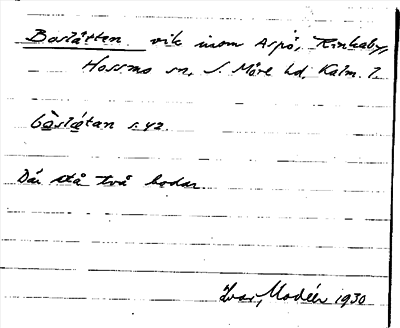 Boslåtten vik inom Aspö, Rinkaby,
Hossmo sn, S. Möre hd, Kalm. l.
bòslåtan s. 42.
Där stå två bodar.
Ivar Modéer 1930